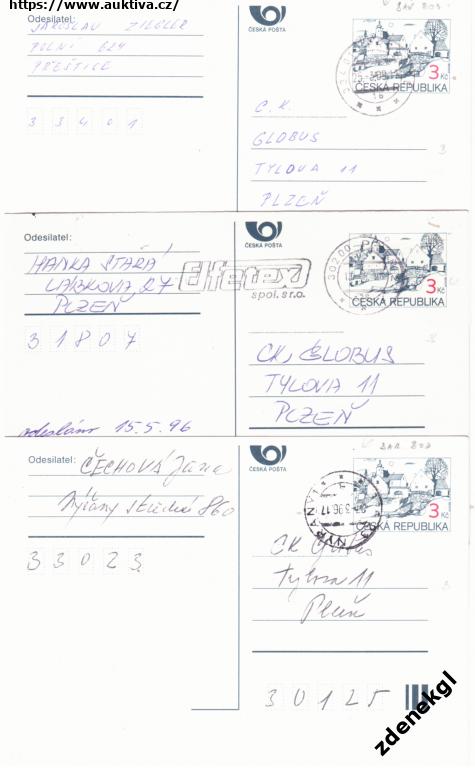 https://www.auktiva.cz/
Odesílatel:
JAROSLAV ZIEGLER
POLNÍ 624
PŘEŠTICE
3 3 4 0 1
ČESKÁ POŠTA
3 Kč
ČESKÁ REPUBLIKA
C.K.
GLOBUS
TYLOVA 11
PLZEŇ
Odesílatel:
HANKA STARÁ
PLZEŇ
3 1 8 0 7
odesláno 15.5.96
ČESKÁ POŠTA
Elfetex
spol. s r.o.
30200
3 Kč
ČESKÁ REPUBLIKA
CK, GLOBUS
TYLOVA 11
PLZEŇ
Odesílatel:
ČECHOVÁ Jana
Nýřany 860
3 3 0 2 3
ČESKÁ POŠTA
3 Kč
ČESKÁ REPUBLIKA
NÝŘANY 1
CK Globus
Tylova 11
Plzeň
3 0 1 2 5
zdenekgl